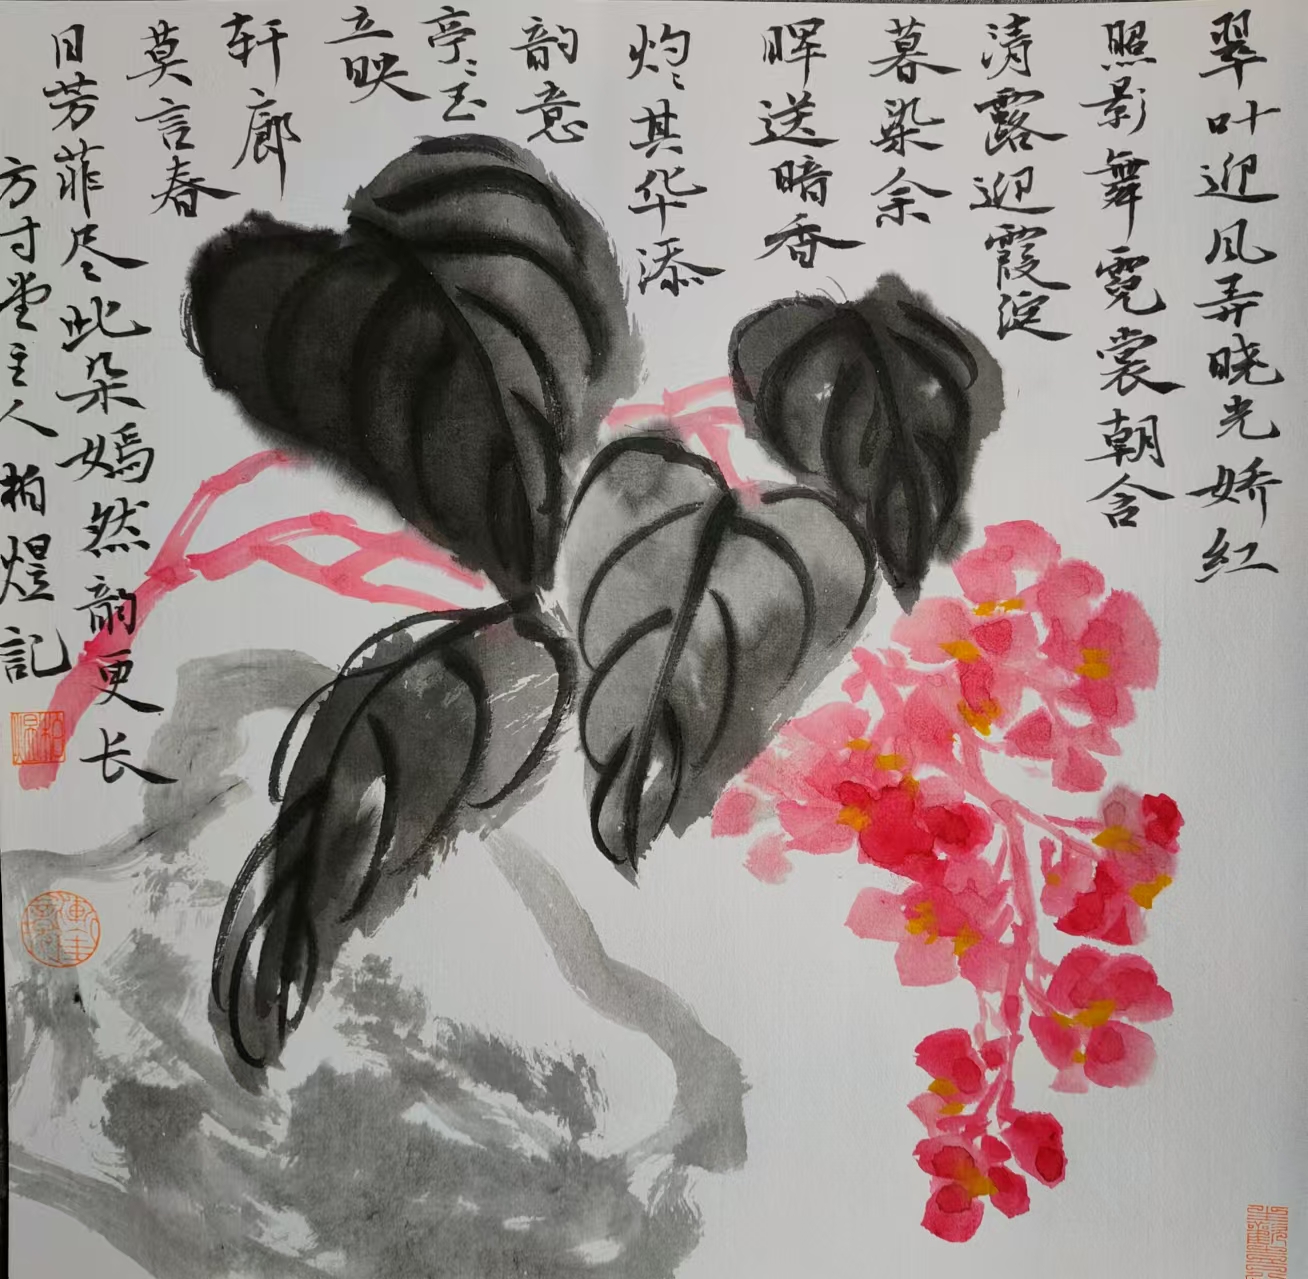 翠叶迎风弄晓光娇红
照影舞霓裳朝含
清露迎霞淀
暮染余
晖送暗香
灼々其华添
韵意
亭々玉
立映
轩廊
莫言春
日芳菲尽々此朵嫣然韵更长
方寸堂主人柏煜記
柏煜